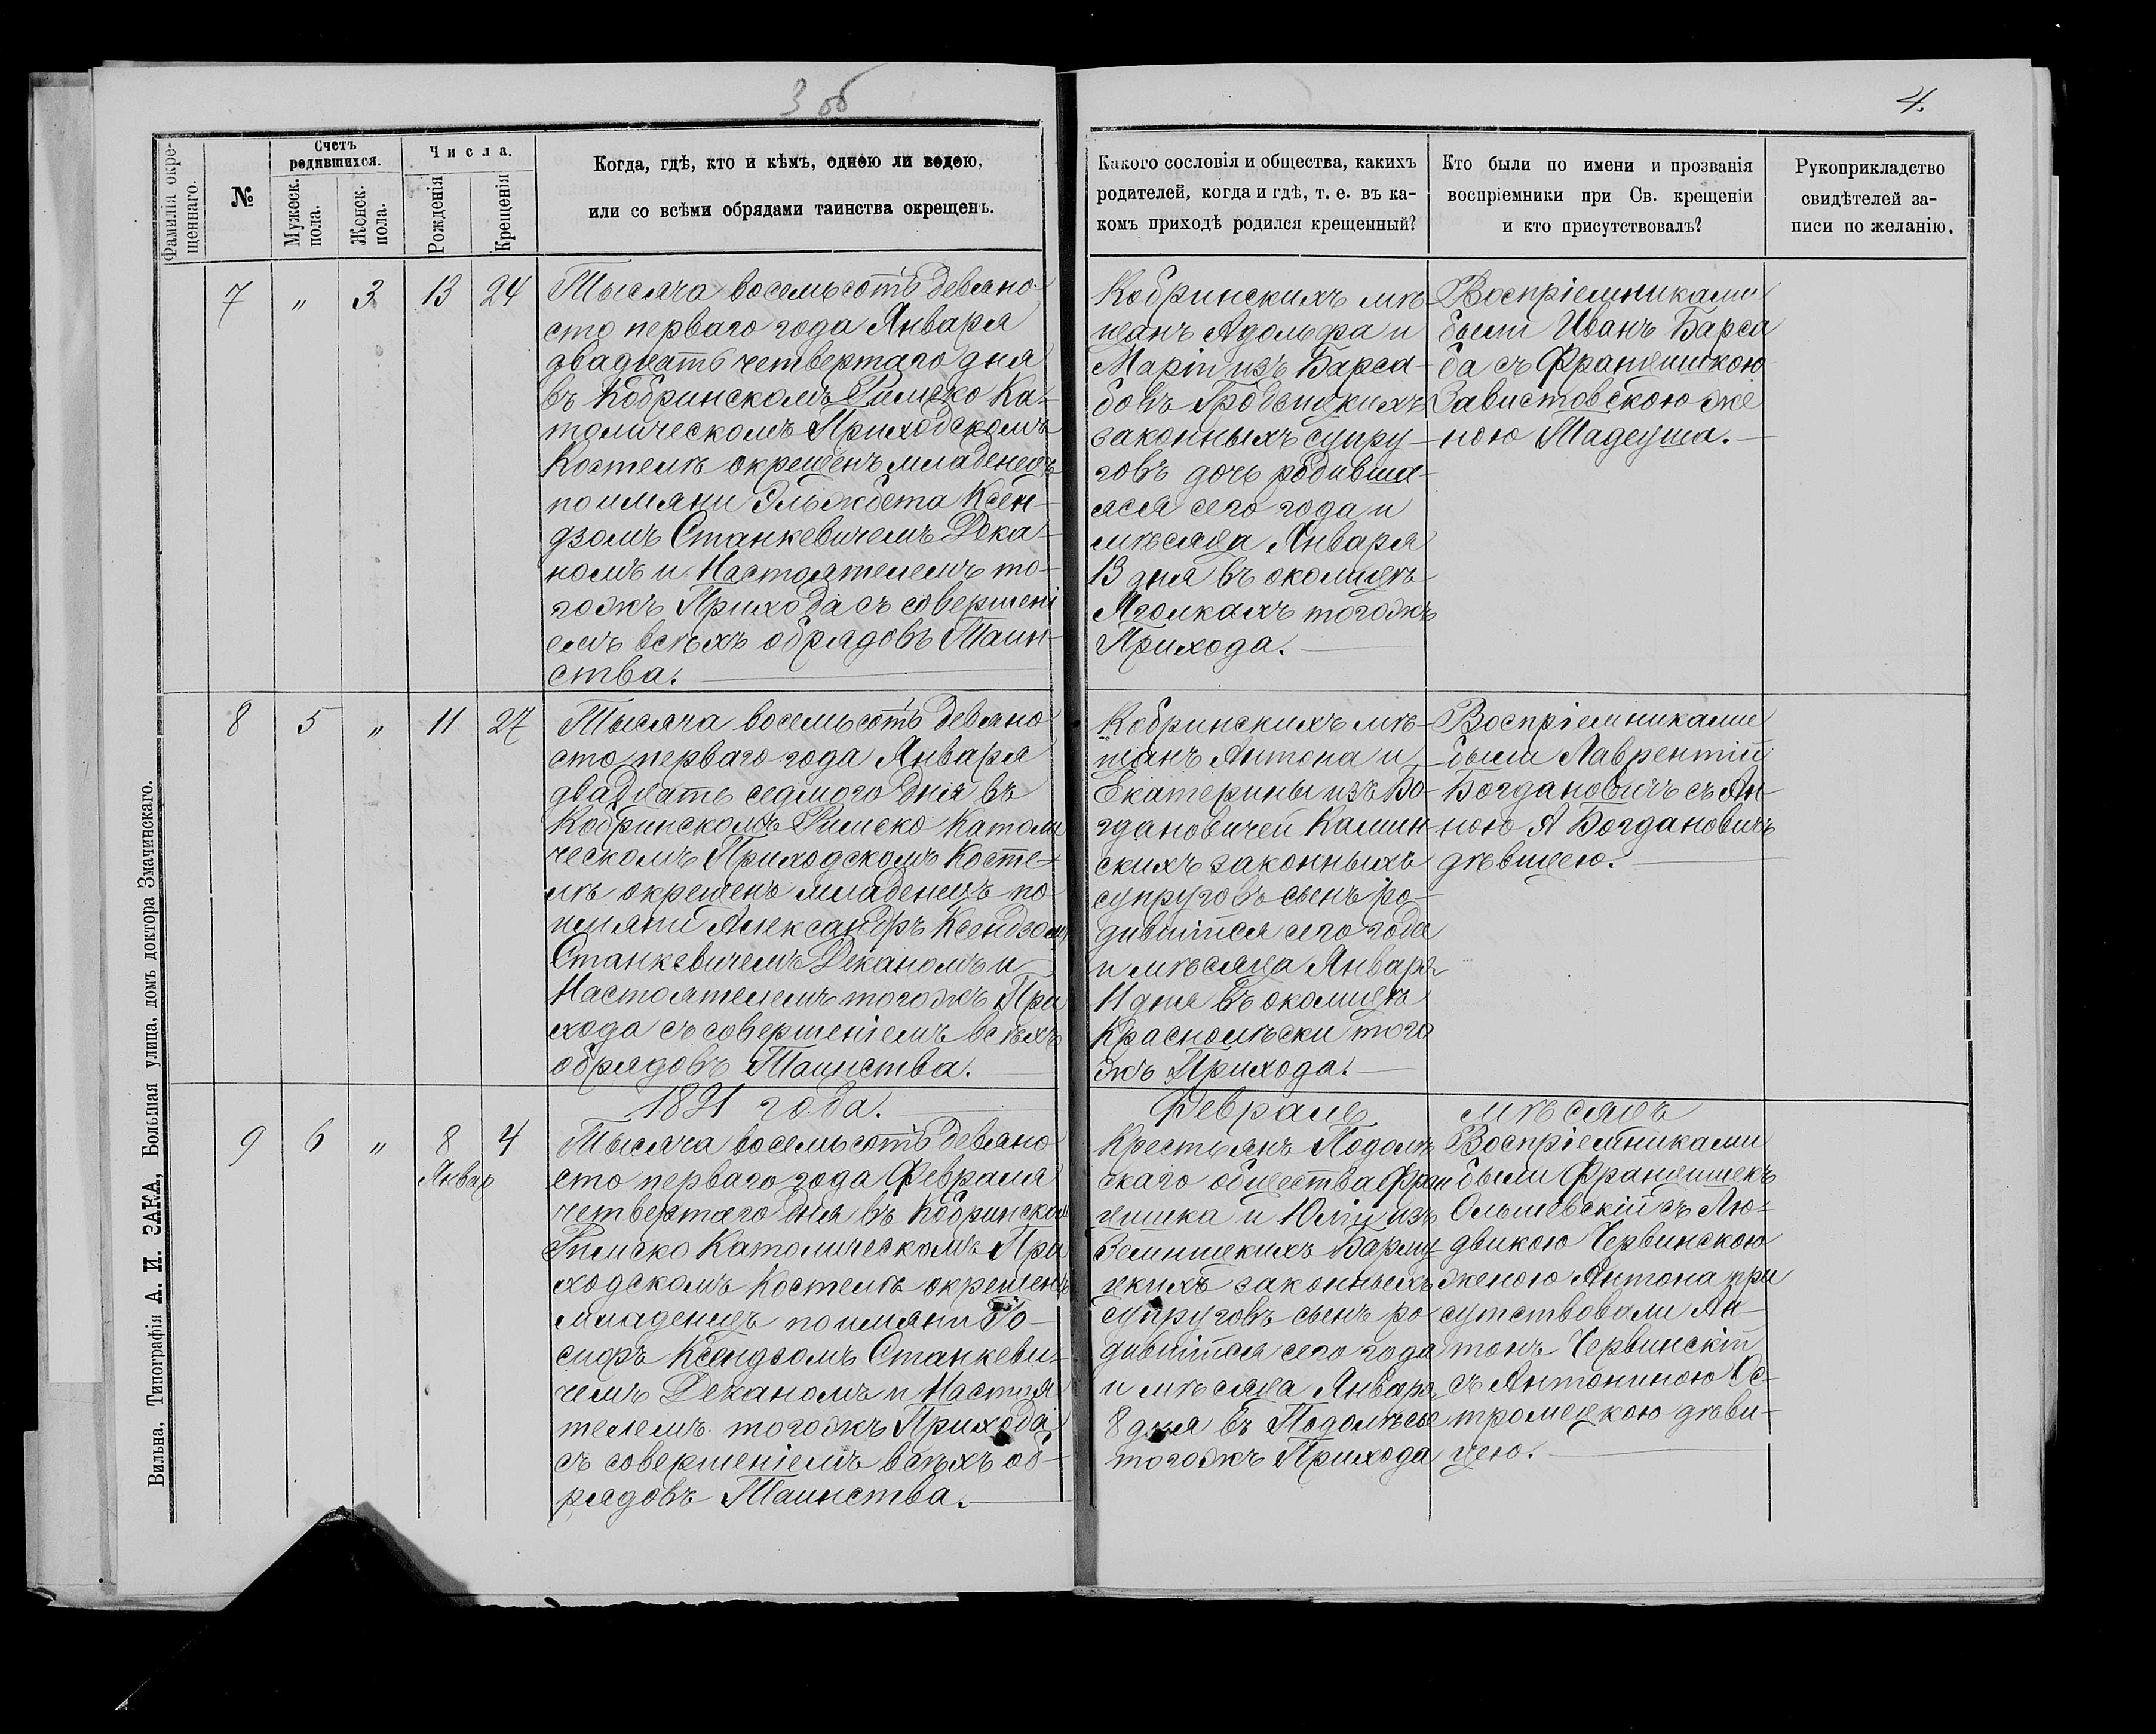 3 об
4.
Фамилія окре-
щеннаго.
№
Счетъ
родившихся.
Мужеск.
пола.
Женск.
пола.
Числа.
Рожденія
Крещенія
Когда, гдѣ, кто и кѣмъ, одною ли водою,
или со всѣми обрядами таинства окрещенъ.
Какого сословія и общества, какихъ
родителей, когда и гдѣ, т. е. въ ка-
комъ приходѣ родился крещенный?
Кто были по имени и прозванія
воспріемники при Св. крещеніи
и кто присутствовалъ?
Рукоприкладство
свидѣтелей за-
писи по желанію.
7 „ 3 13 24
Тысяча восемьсотъ девяно-
сто перваго года Января
двадцать четвертаго дня
въ Кобринскомъ Римско Ка-
толическомъ Приходскомъ
Костелѣ окрещенъ младенецъ
по имяни Эльжбета Ксен-
дзомъ Станкевичемъ Дека-
номъ и Настоятелемъ то-
гожъ Прихода съ совершені
емъ всѣхъ обрядовъ Таин-
ства.
Кобринскихъ мѣ-
щанъ Адольфа и
Маріи изъ Барса-
бовъ
законныхъ супру-
говъ дочь родивша-
яся сего года и
мѣсяца Января
13 дня въ околицѣ
Яголкахъ тогожъ
Прихода.
Воспріемниками
были Иванъ Барса
ба съ Францишкою
Завистовскою же
ною Тадеуша.
8 5 „ 11 27
Тысяча восемьсотъ девяно
сто перваго года Января
двадцать седмого дня въ
Кобринскомъ Римско Католи
ческомъ Приходскомъ Косте-
лѣ окрещенъ младенецъ по
имяни Александръ Ксендзомъ
Станкевичемъ Деканомъ и
Настоятелемъ тогожъ При
хода съ совершеніемъ всѣхъ
обрядовъ Таинства.
Кобринскихъ мѣ-
щанъ Антона и
Екатерины изъ Бо-
гдановичей Камин-
скихъ законныхъ
супруговъ сынъ ро-
дившійся сего года
и мѣсяца Января
11 дня въ околицѣ
Красномѣски того
жъ Прихода.
Воспріемниками
были Лаврентій
Богдановичъ съ Ан-
ною А Богдановичъ
дѣвицею.
1891 года.
Февраль мѣсяцъ
9 6 „ 8 4
Январ
Тысяча восемьсотъ девяно
сто перваго года Февраля
четвертаго дня въ Кобринском
Римско Католическомъ При
ходскомъ Костелѣ окрещенъ
младенецъ по имяни Іо-
сифъ Ксендзомъ Станкеви-
чемъ Деканомъ и Настоя
телемъ тогожъ Прихода
съ совершеніемъ всѣхъ об-
рядовъ Таинства.
Крестьянъ Подолѣ
скаго общества Фран
цишка и Юліи изъ
законныхъ
супруговъ сынъ ро
дившійся сего года
и мѣсяца Января
8 дня въ Подолѣсье
тогожъ Прихода
Воспріемниками
были Францишекъ
Ольшевскій съ Лю-
двикою Червинскою
женою Антона при
сутствовали Ан-
тонъ Червинскій
съ Антониною Ос-
тромецкою дѣви-
цею.
Вильна, Типографія А. И. ЗАКА, Большая улица, домъ доктора Змачинскаго.